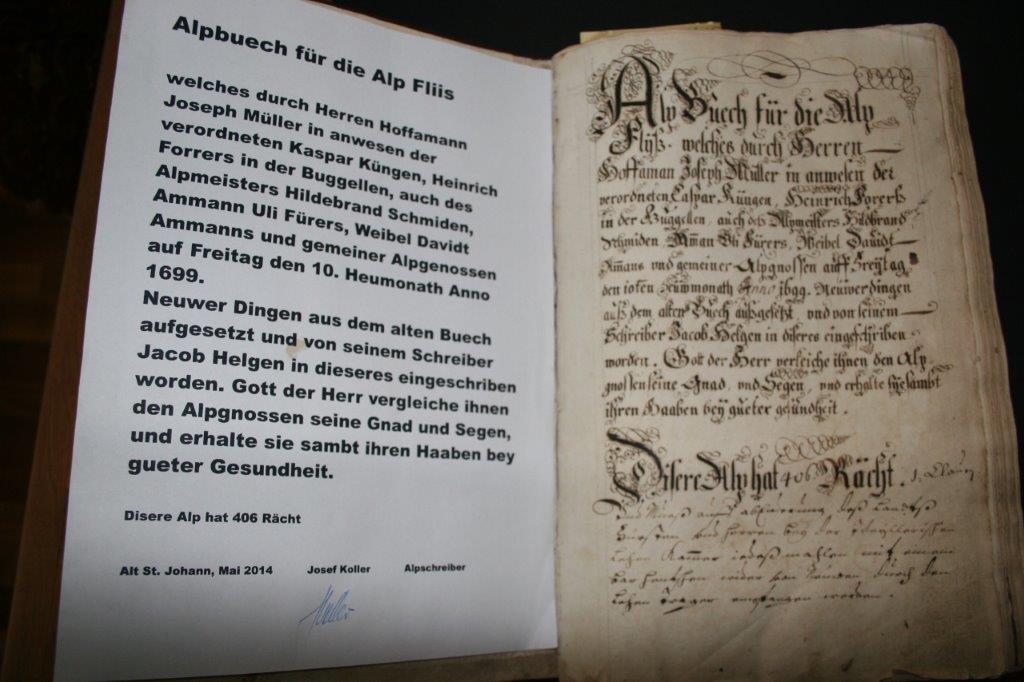 Alpbuech für die Alp Fliis
welches durch Herren Hoffamann
Joseph Müller in anwesen der
verordneten Kaspar Küngen, Heinrich
Forrers in der Buggellen, auch des
Alpmeisters Hildebrand Schmiden,
Ammann Uli Fürers, Weibel Davidt
Ammanns und gemeiner Alpgenossen
auf Freitag den 10. Heumonath Anno
1699.
Neuwer Dingen aus dem alten Buech
aufgesetzt und von seinem Schreiber
Jacob Helgen in dieseres eingeschriben
worden. Gott der Herr vergleiche ihnen
den Alpgnossen seine Gnad und Segen,
und erhalte sie sambt ihren Haaben bey
gueter Gesundheit.
Disere Alp hat 406 Rächt
Alt St. Johann, Mai 2014 Josef Koller Alpschreiber
Alp Buech für die Alp
Flÿß. welches durch Herren
Hoffaman Joseph Müller in anwesen der
verordneten Caspar Küngen, Heinrich Forerß
in der Buggellen, auch deß Alpmeisters Hildbrand
Schmiden, Aman Uli Fürers, Weibel Davidt
Amans und gemeiner Alpgnossen auff Freÿtag
den 10ten Anno 1699. Neuwerdingen
auß dem alten Buech außgesetzt, und von seinem
Schreiber Jacob Helgen in diseres eingeschriben
worden. Gott der Herr verleiche ihnen den Alp
gnossen seine Gnad, und Segen, und erhalte sÿe sambt
ihren Haaben beÿ gueter gesundheit.
Disere Alp hat 406 Rächt.